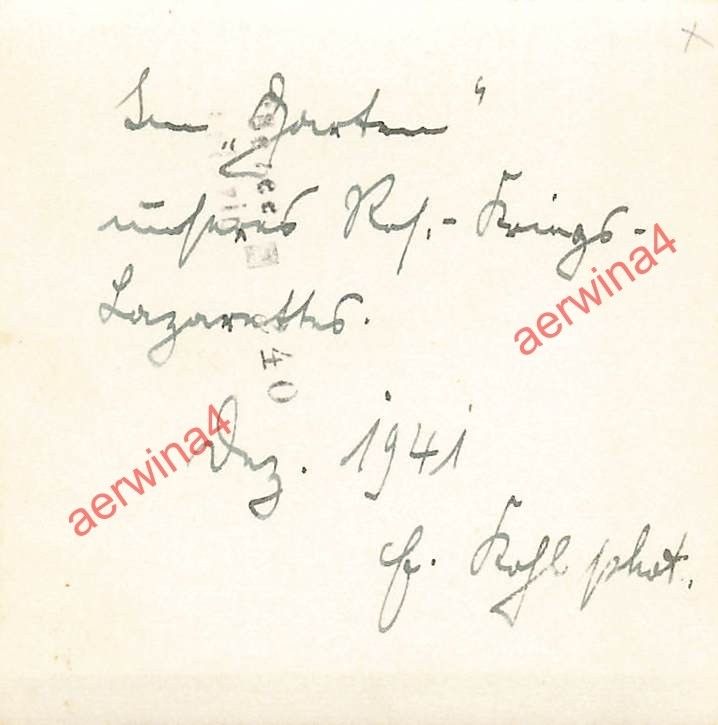 Im „Garten“
unseres Res.-Kriegs-
Lazarettes.
Dez. 1941
Kohl phot.
40
aerwina4
aerwina4